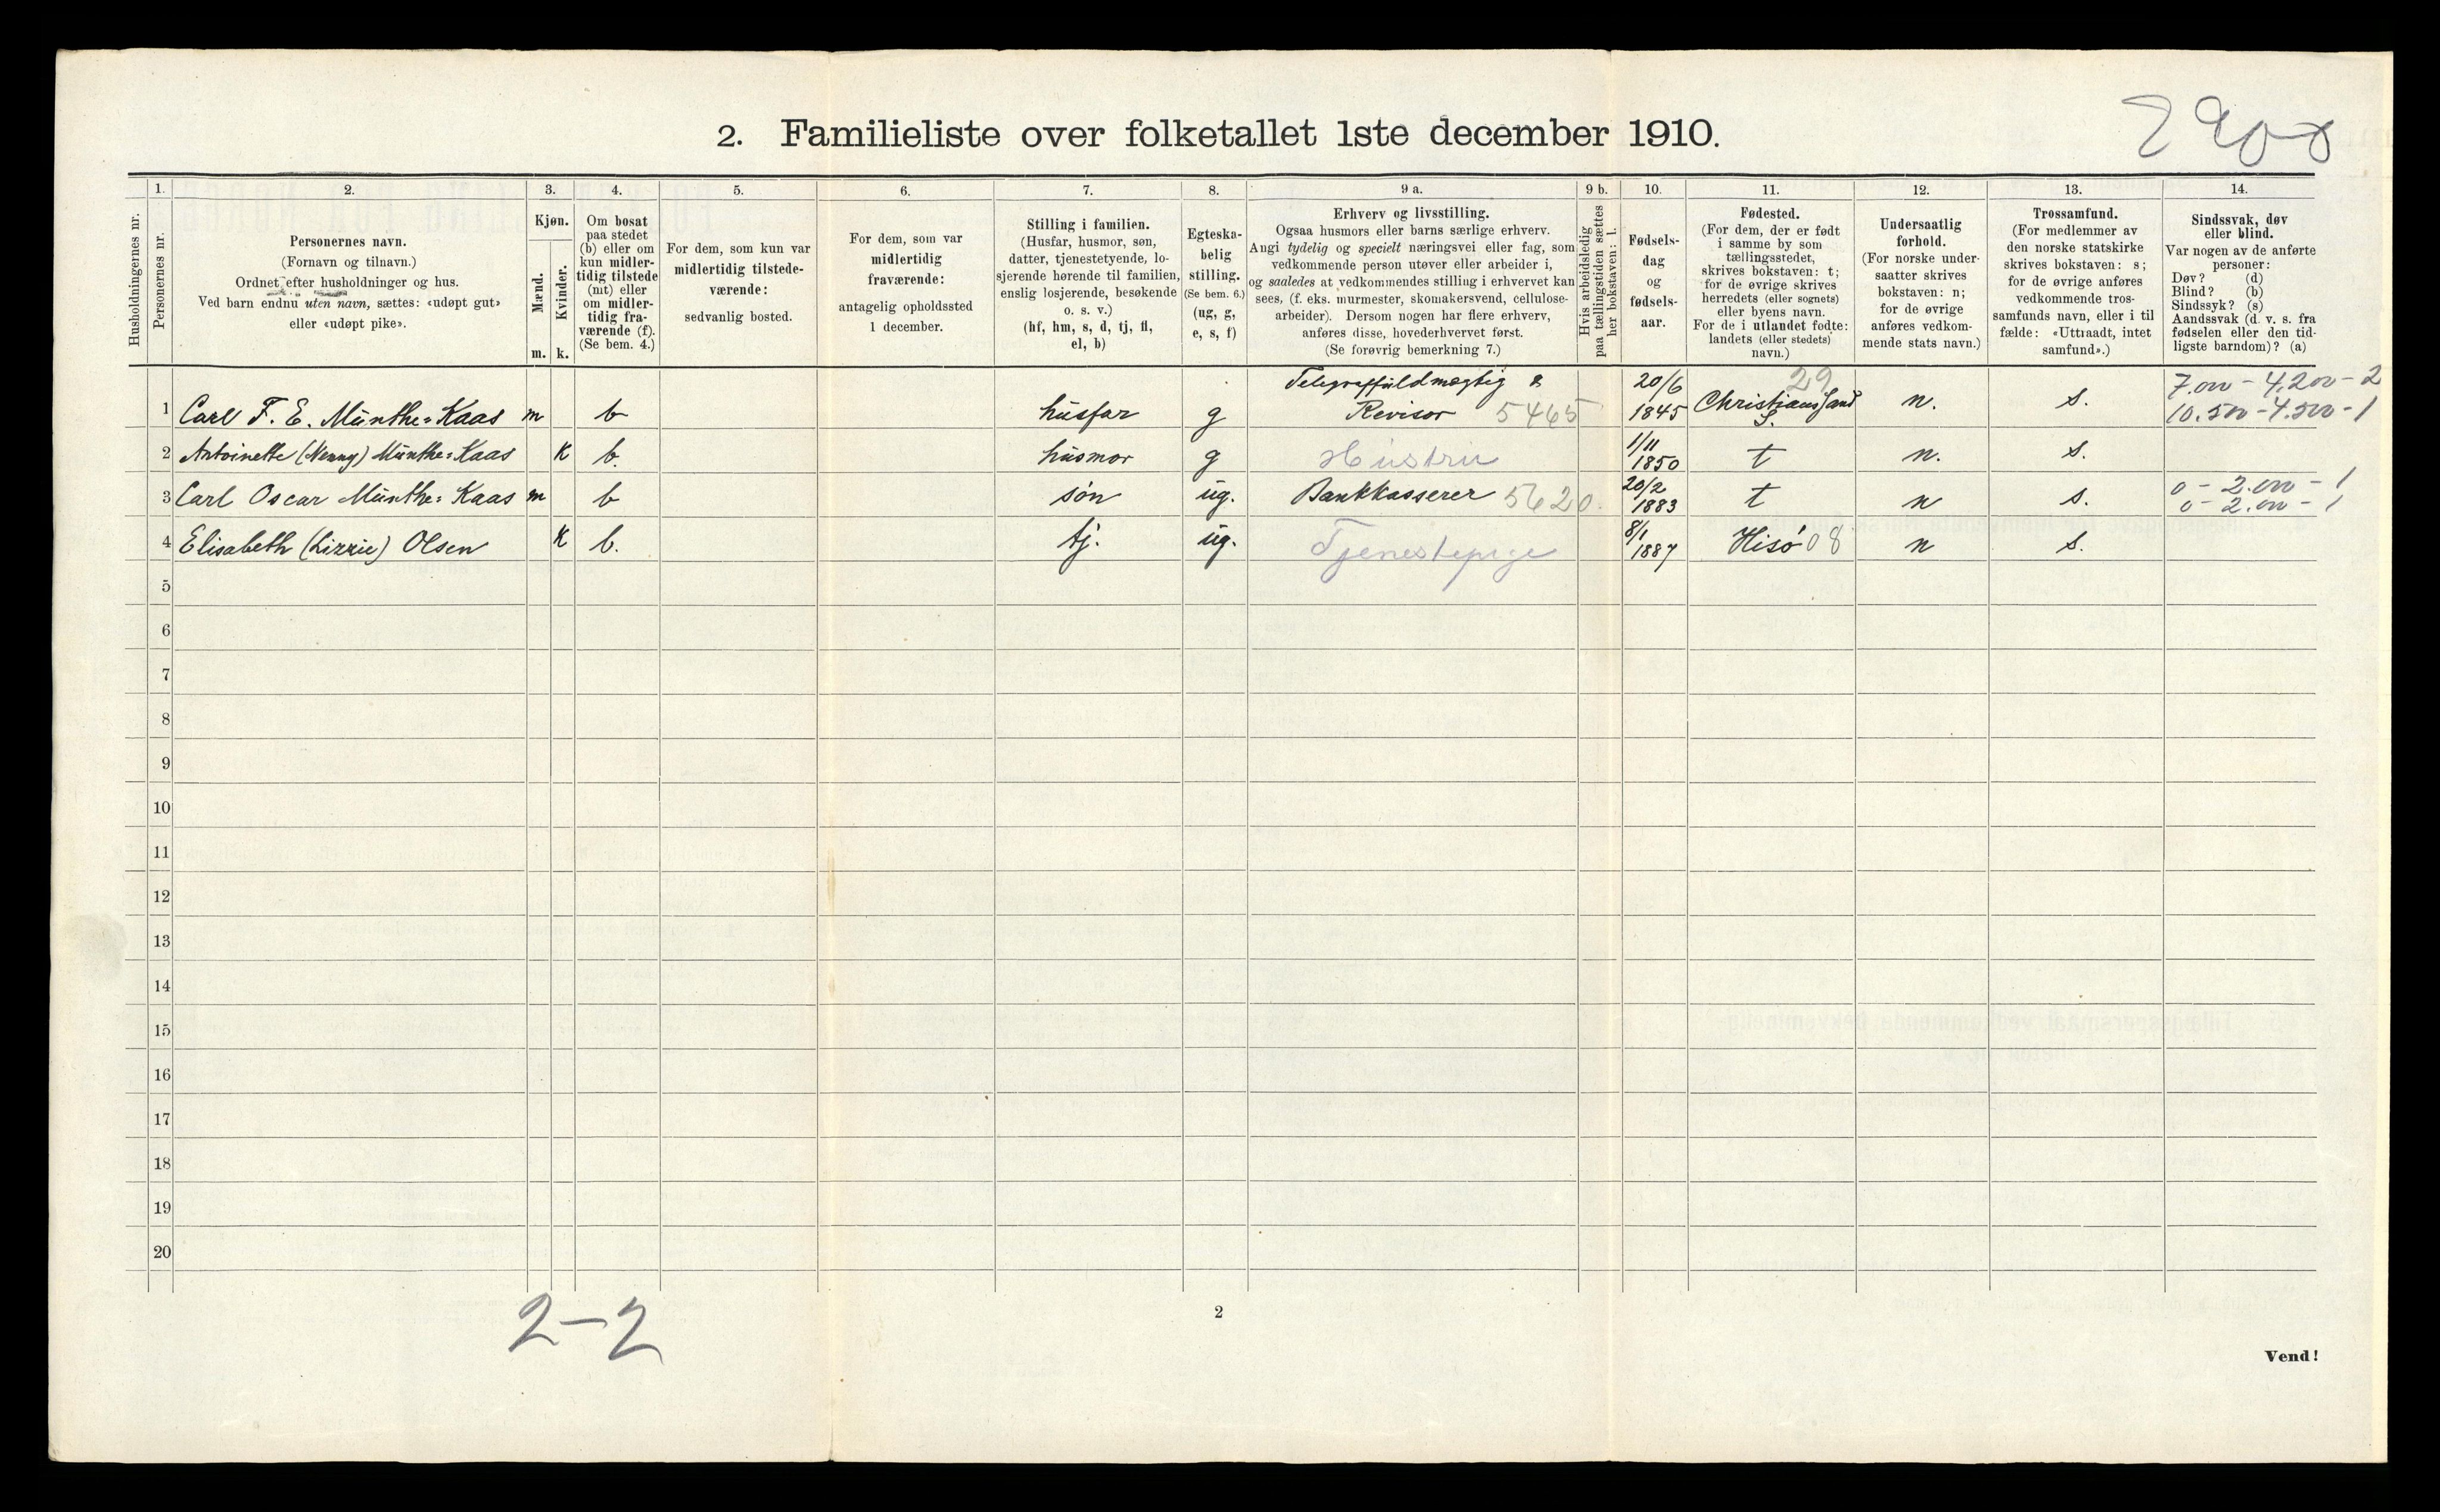 2. Familieliste over folketallet 1ste december 1910.
Husholdningernes nr.
1.
Personernes nr.
2.
Personernes navn.
(Fornavn og tilnavn.)
Ordnet efter husholdninger og hus.
Ved barn endnu uten navn, sættes: «udøpt gut»
eller «udøpt pike».
3.
Kjøn.
Mænd.
m.
Kvinder.
k.
4.
Om bosat
paa stedet
(b) eller om
kun midler-
tidig tilstede
(mt) eller
om midler-
tidig fra-
værende (f).
(Se bem. 4.)
5.
For dem, som kun var
midlertidig tilstede-
værende:
sedvanlig bosted.
6.
For dem, som var
midlertidig
fraværende:
antagelig opholdssted
1 december.
7.
Stilling i familien.
(Husfar, husmor, søn,
datter, tjenestetyende, lo-
sjerende hørende til familien,
enslig losjerende, besøkende
o. s. v.)
(hf, hm, s, d, tj, fl,
el, b)
8.
Egteska-
belig
stilling.
(Se bem. 6.)
(ug, g,
e, s, f)
9 a.
Erhverv og livsstilling.
Ogsaa husmors eller barns særlige erhverv.
Angi tydelig og specielt næringsvei eller fag, som
vedkommende person utøver eller arbeider i,
og saaledes at vedkommendes stilling i erhvervet kan
sees, (f. eks. murmester, skomakersvend, cellulose-
arbeider). Dersom nogen har flere erhverv,
anføres disse, hovederhvervet først.
(Se forøvrig bemerkning 7.)
9 b.
Hvis arbeidsledig
paa tællingstiden sættes
her bokstaven: l.
10.
Fødsels-
dag
og
fødsels-
aar.
11.
Fødested.
(For dem, der er født
i samme by som
tællingsstedet,
skrives bokstaven: t;
for de øvrige skrives
herredets (eller sognets)
eller byens navn.
For de i utlandet fødte:
landets (eller stedets)
navn.)
12.
Undersaatlig
forhold.
(For norske under-
saatter skrives
bokstaven: n;
for de øvrige
anføres vedkom-
mende stats navn.)
13.
Trossamfund.
(For medlemmer av
den norske statskirke
skrives bokstaven: s;
for de øvrige anføres
vedkommende tros-
samfunds navn, eller i til
fælde: «Uttraadt, intet
samfund».)
14.
Sindssvak, døv
eller blind.
Var nogen av de anførte
personer:
Døv? (d)
Blind? (b)
Sindssyk? (s)
Aandssvak (d. v. s. fra
fødselen eller den tid-
ligste barndom)? (a)
1 Carl F. E. Münthe=Kaas m b husfar g Telegraffuldmægtig & Revisor 5465 20/6 1845 Christianssand S. 29 n. s. 7.000 - 4.200 - 2
10.500 - 4.500 - 1
2 Antoinette (Nenny) Münthe=Kaas K b. husmor g Hustru 1/11 1850 t n. s.
3 Carl Oscar Münthe=Kaas m b søn ug. Bankkasserer 5620. 20/2 1883 t n s. 0 - 2.000 - 1
0 - 2.000 - 1
4 Elisabeth (Lizzie) Olsen K b. tj. ug. Tjenestepige 8/1 1887 Hisø 08 n s.
5
6
7
8
9
10
11
12
13
14
15
16
17
18
19
20
2-2
2
Vend!